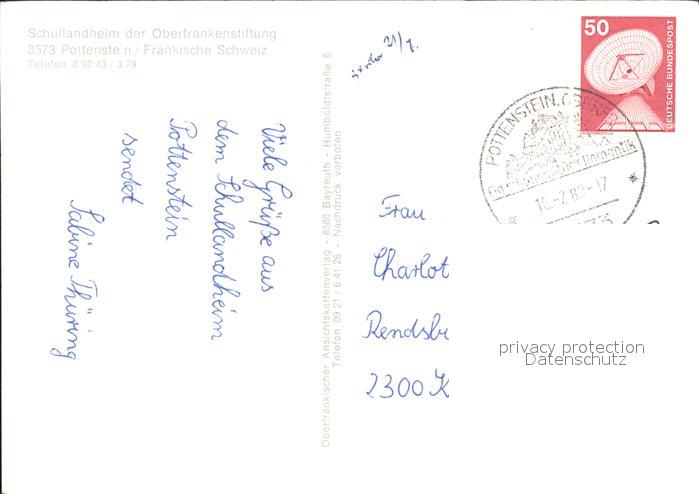 Schullandheim der Oberfrankenstiftung
8573 Pottenstein / Fränkische Schweiz
Telefon 0 92 43 / 3 79
21/7.
50
DEUTSCHE BUNDESPOST
POTTENSTEIN, OBERFR
Viele Grüße aus
dem Schullandheim
Pottenstein
sendet
Sabine Thüring
Oberfränkischer Ansichtskartenverlag - 8580 Bayreuth - Humboldtstraße 5
Telefon 09 21 / 6 41 26 - Nachdruck verboten
Frau
Charlot
Rendsbu
2300 K
privacy protection
Datenschutz